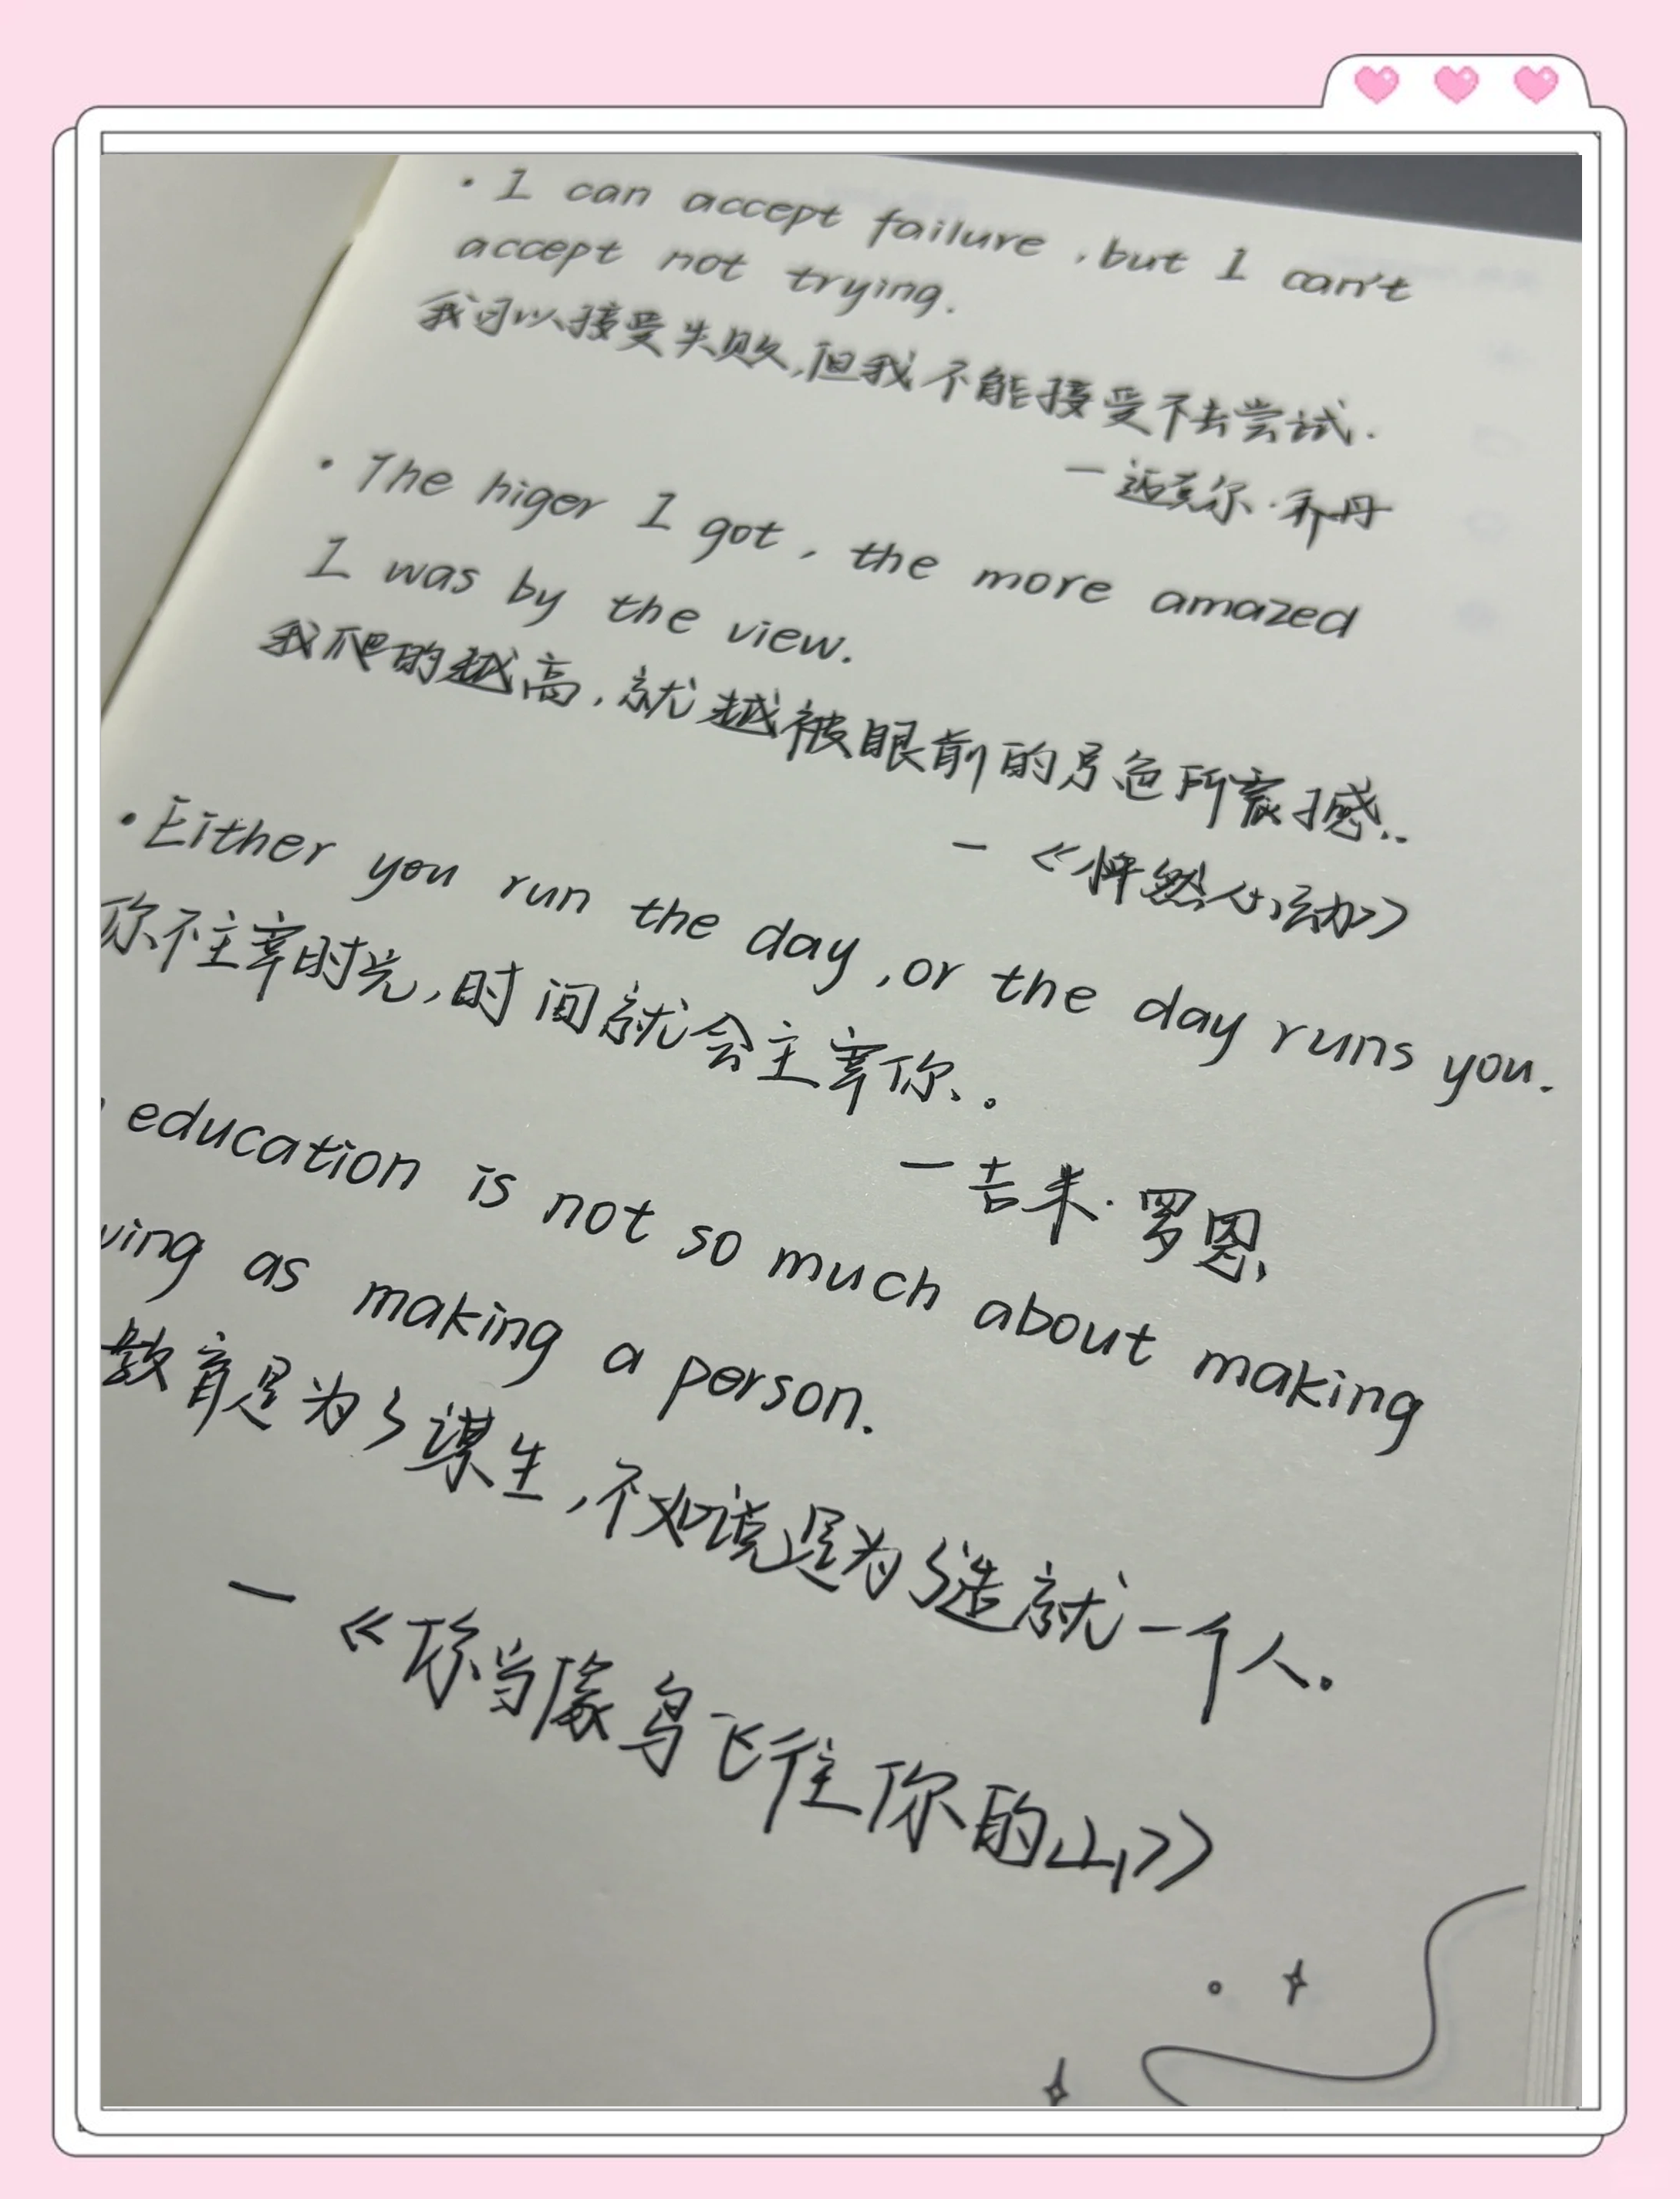 · I can accept failure, but I can't
accept not trying.
我可以接受失败,但我不能接受不去尝试.
一迈克尔·乔丹
· The higer I got, the more amazed
I was by the view.
我爬的越高,就越被眼前的景色所震撼..
一 《怦然心动》
· Either you run the day, or the day runs you.
你不主宰时光,时间就会主宰你、。
一吉米·罗恩
education is not so much about making
ving as making a person.
教育是为了谋生,不如说是为了造就一个人。
一 《你当像鸟飞往你的山》